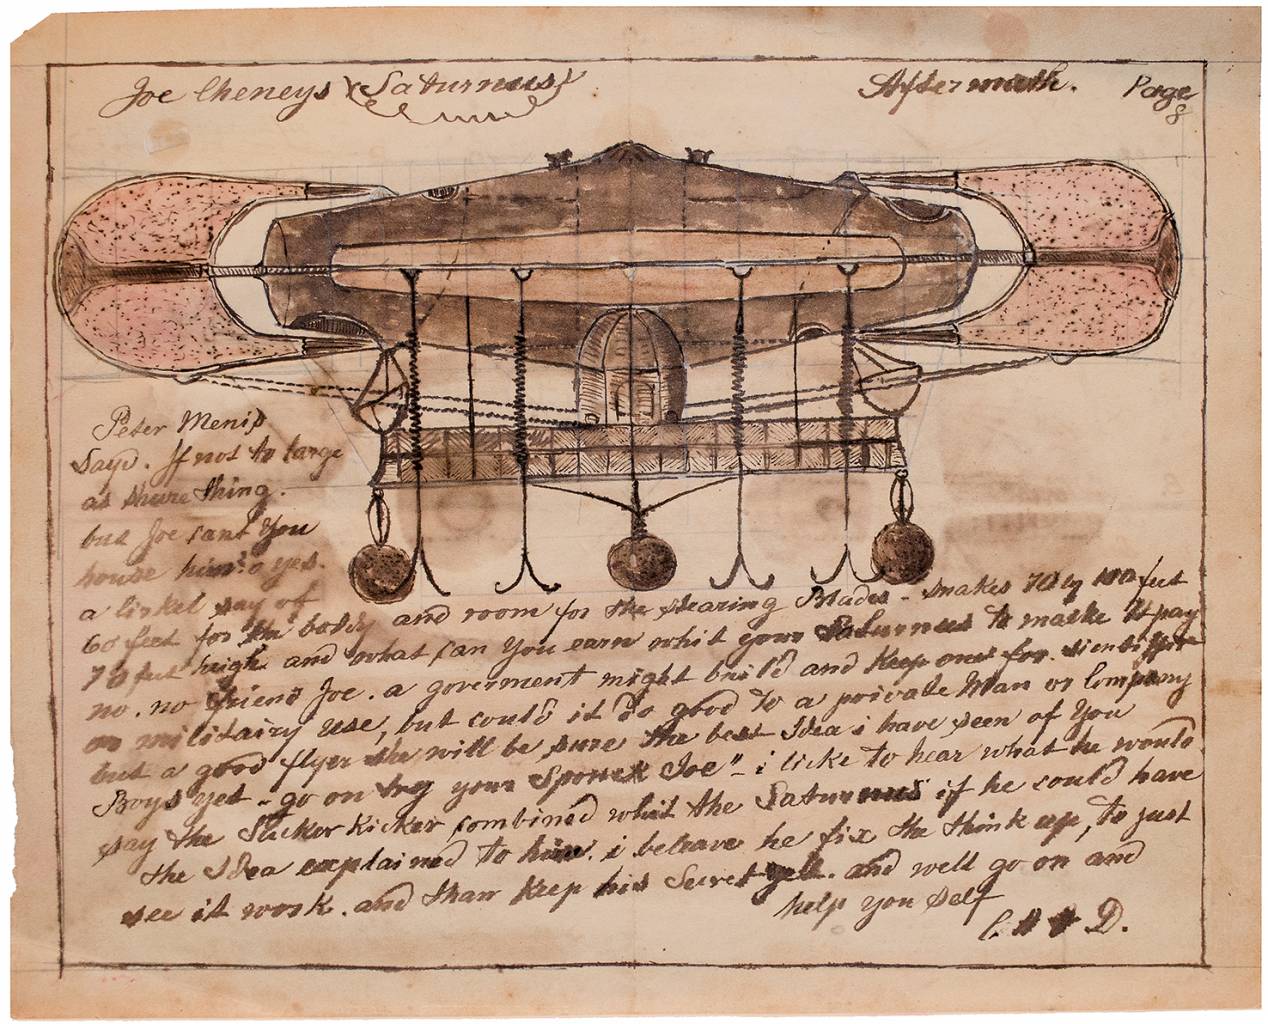 Joe Cheneys (Saturnus)
Aftermath. Page
8
Peter Menis
Sayd. If not to large
as shure thing.
but Joe cant You
house him? o yes.
a lickel say of
60 feet for the boddy and room for the stearing Blades - makes 70 by 100 feet
70 feet high and what can You earn whit your Saturnus to make It pay
no. no friend Joe. a goverment might build and Keep one for sientiffic
or militairy use, but could it do good to a private Man or Company
but a good flyer she will be, sure the best Idea i have seen of You
Boys yet - go on try your Joe" - i licke to hear what he would
say the Sucker Kicker combined whit the Saturnus if he could have
the Idea explained to him. i beleave he fix the think up, to just
see it work. and than Keep his Secret yett. and well go on and
help you self
D.